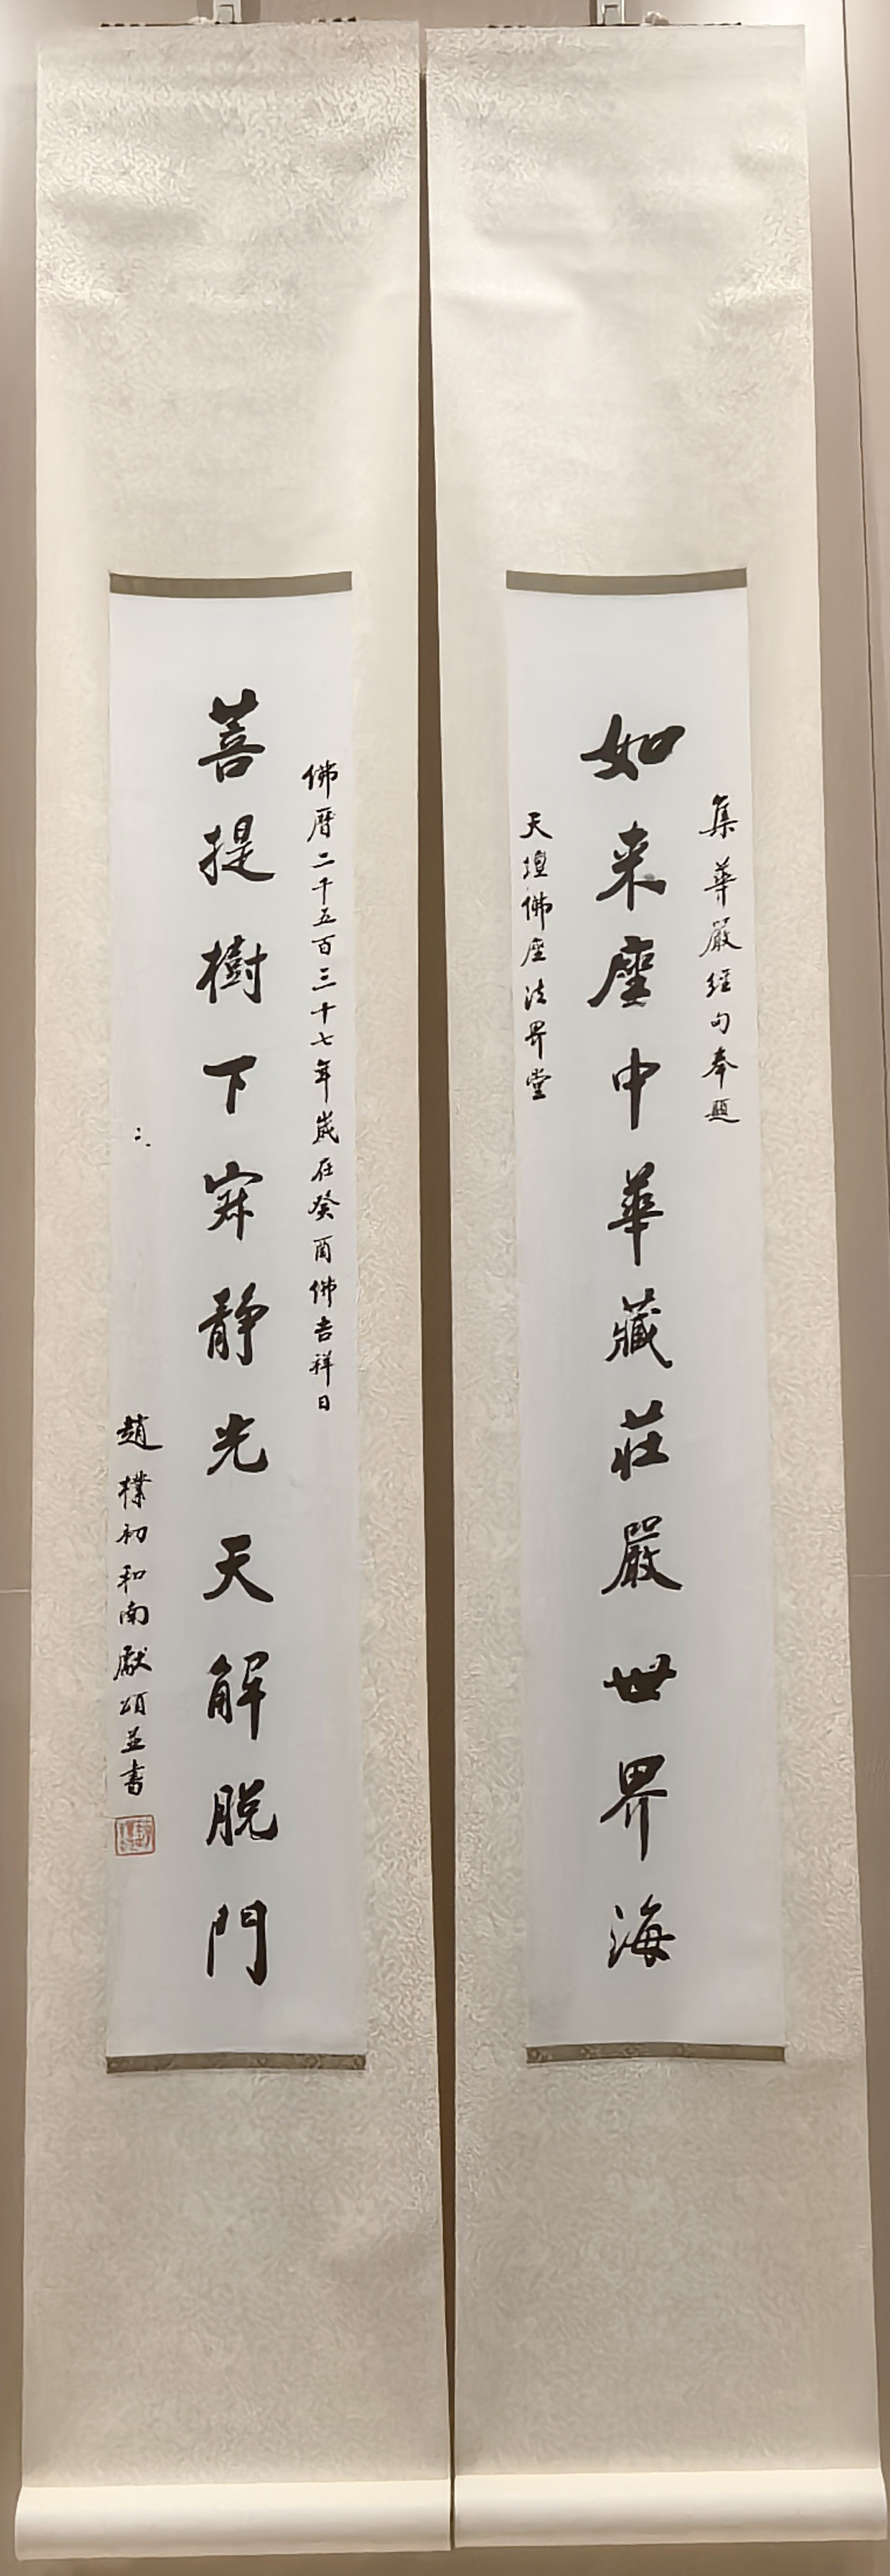 集華嚴經句奉題
如来座中華藏莊嚴世界海
天壇佛座法界堂
佛曆二千五百三十七年歲在癸酉佛吉祥日
菩提樹下寂静光天解脱門
趙樸初和南獻頌並書